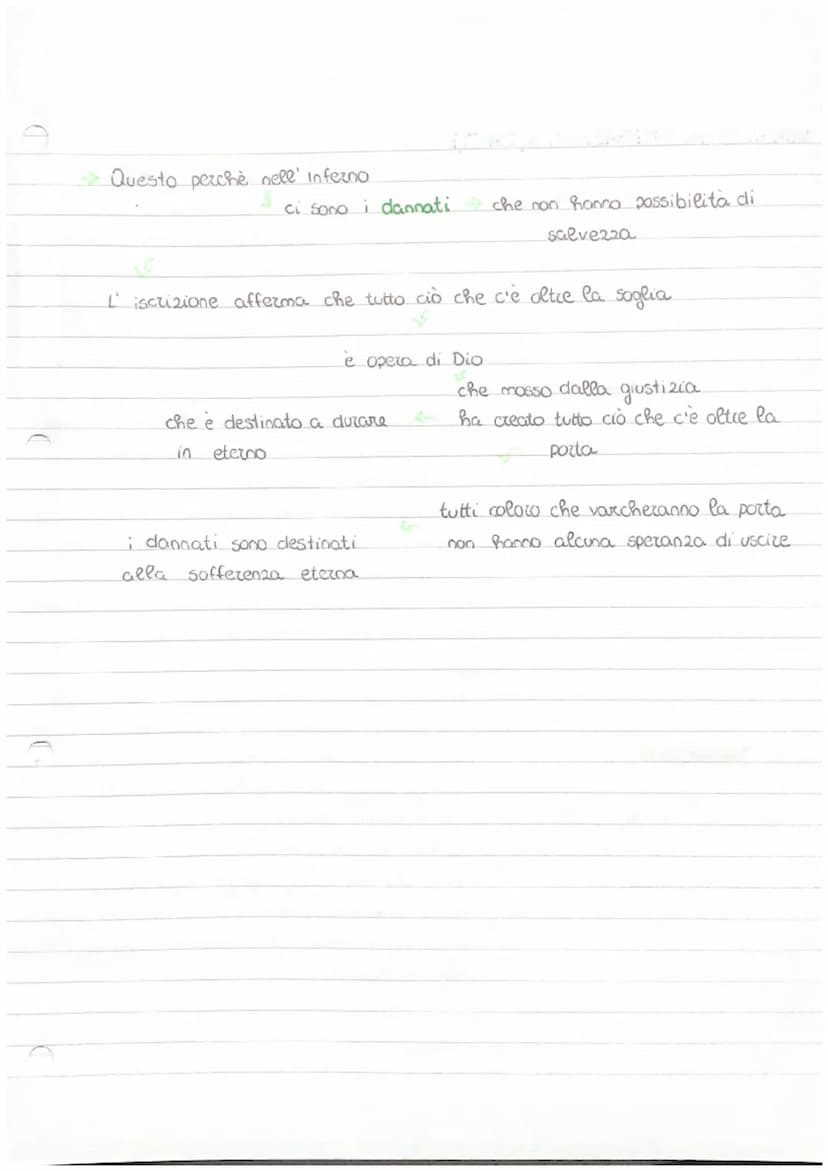 → Questo perchè nell' inferno
ci sono i dannati → che non hanno possibilità di
salvezza
L' iscrizione afferma che tutto ciò che c'è oltre la soglia
è opera di Dio
che mosso dalla giustizia
che è destinato a durare ← ha creato tutto ciò che c'è oltre la
in eterno porta
tutti coloro che varcheranno la porta
i dannati sono destinati non hanno alcuna speranza di uscire
alla sofferenza eterna